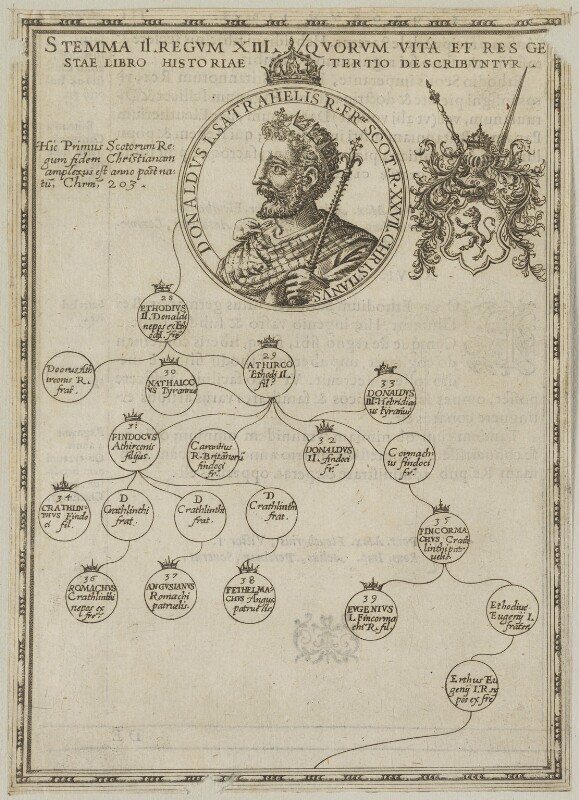 STEMMA II. REGVM XIII. QVORVM VITA ET RES GE
STAE LIBRO HISTORIAE TERTIO DESCRIBVNTVR
Hic Primus Scotorum Re
gum fidem Christianam
amplexus est anno post na
tu, Chrm, 203.
DONALDVS I. SATRAHELIS R. FR. SCOT. R. XXVII. CHRISTIANVS
28
ETHODIVS
II. Donaldi
nepos ex
fre
29
ATHIRCO
Ethodj II.
fil.
Doorus Ath
irconis R.
frat.
30
NATHALOC
us Tyrannus
33
DONALDVS
III. Hebridia
nus tyranus
31
FINDOCVS
Athirconis
filius.
Carantius
R. Britanorū
findoci
fr.
32
DONALDVS
II. findoci
fr.
Cormach
us findoci
fr.
34
CRATHLIN
THVS Findo
ci fil.
D
Crathlinthi
frat.
D
Crathlinthi
frat.
D
Crathlinthi
frat.
35
FINCORMA
CHVS Crath
linthi patr
uelis
36
ROMACHVS
Crathlinthi
nepos ex
fre
37
ANGVSIANVS
Romachi
patruelis.
38
FETHELMA
CHVS Angus
patruelis
39
EVGENIVS
I. Fincorma
chi R. fil.
Ethodius
Eugenij I.
frater.
Erthus Eu
genij I. R. ne
pos ex fre